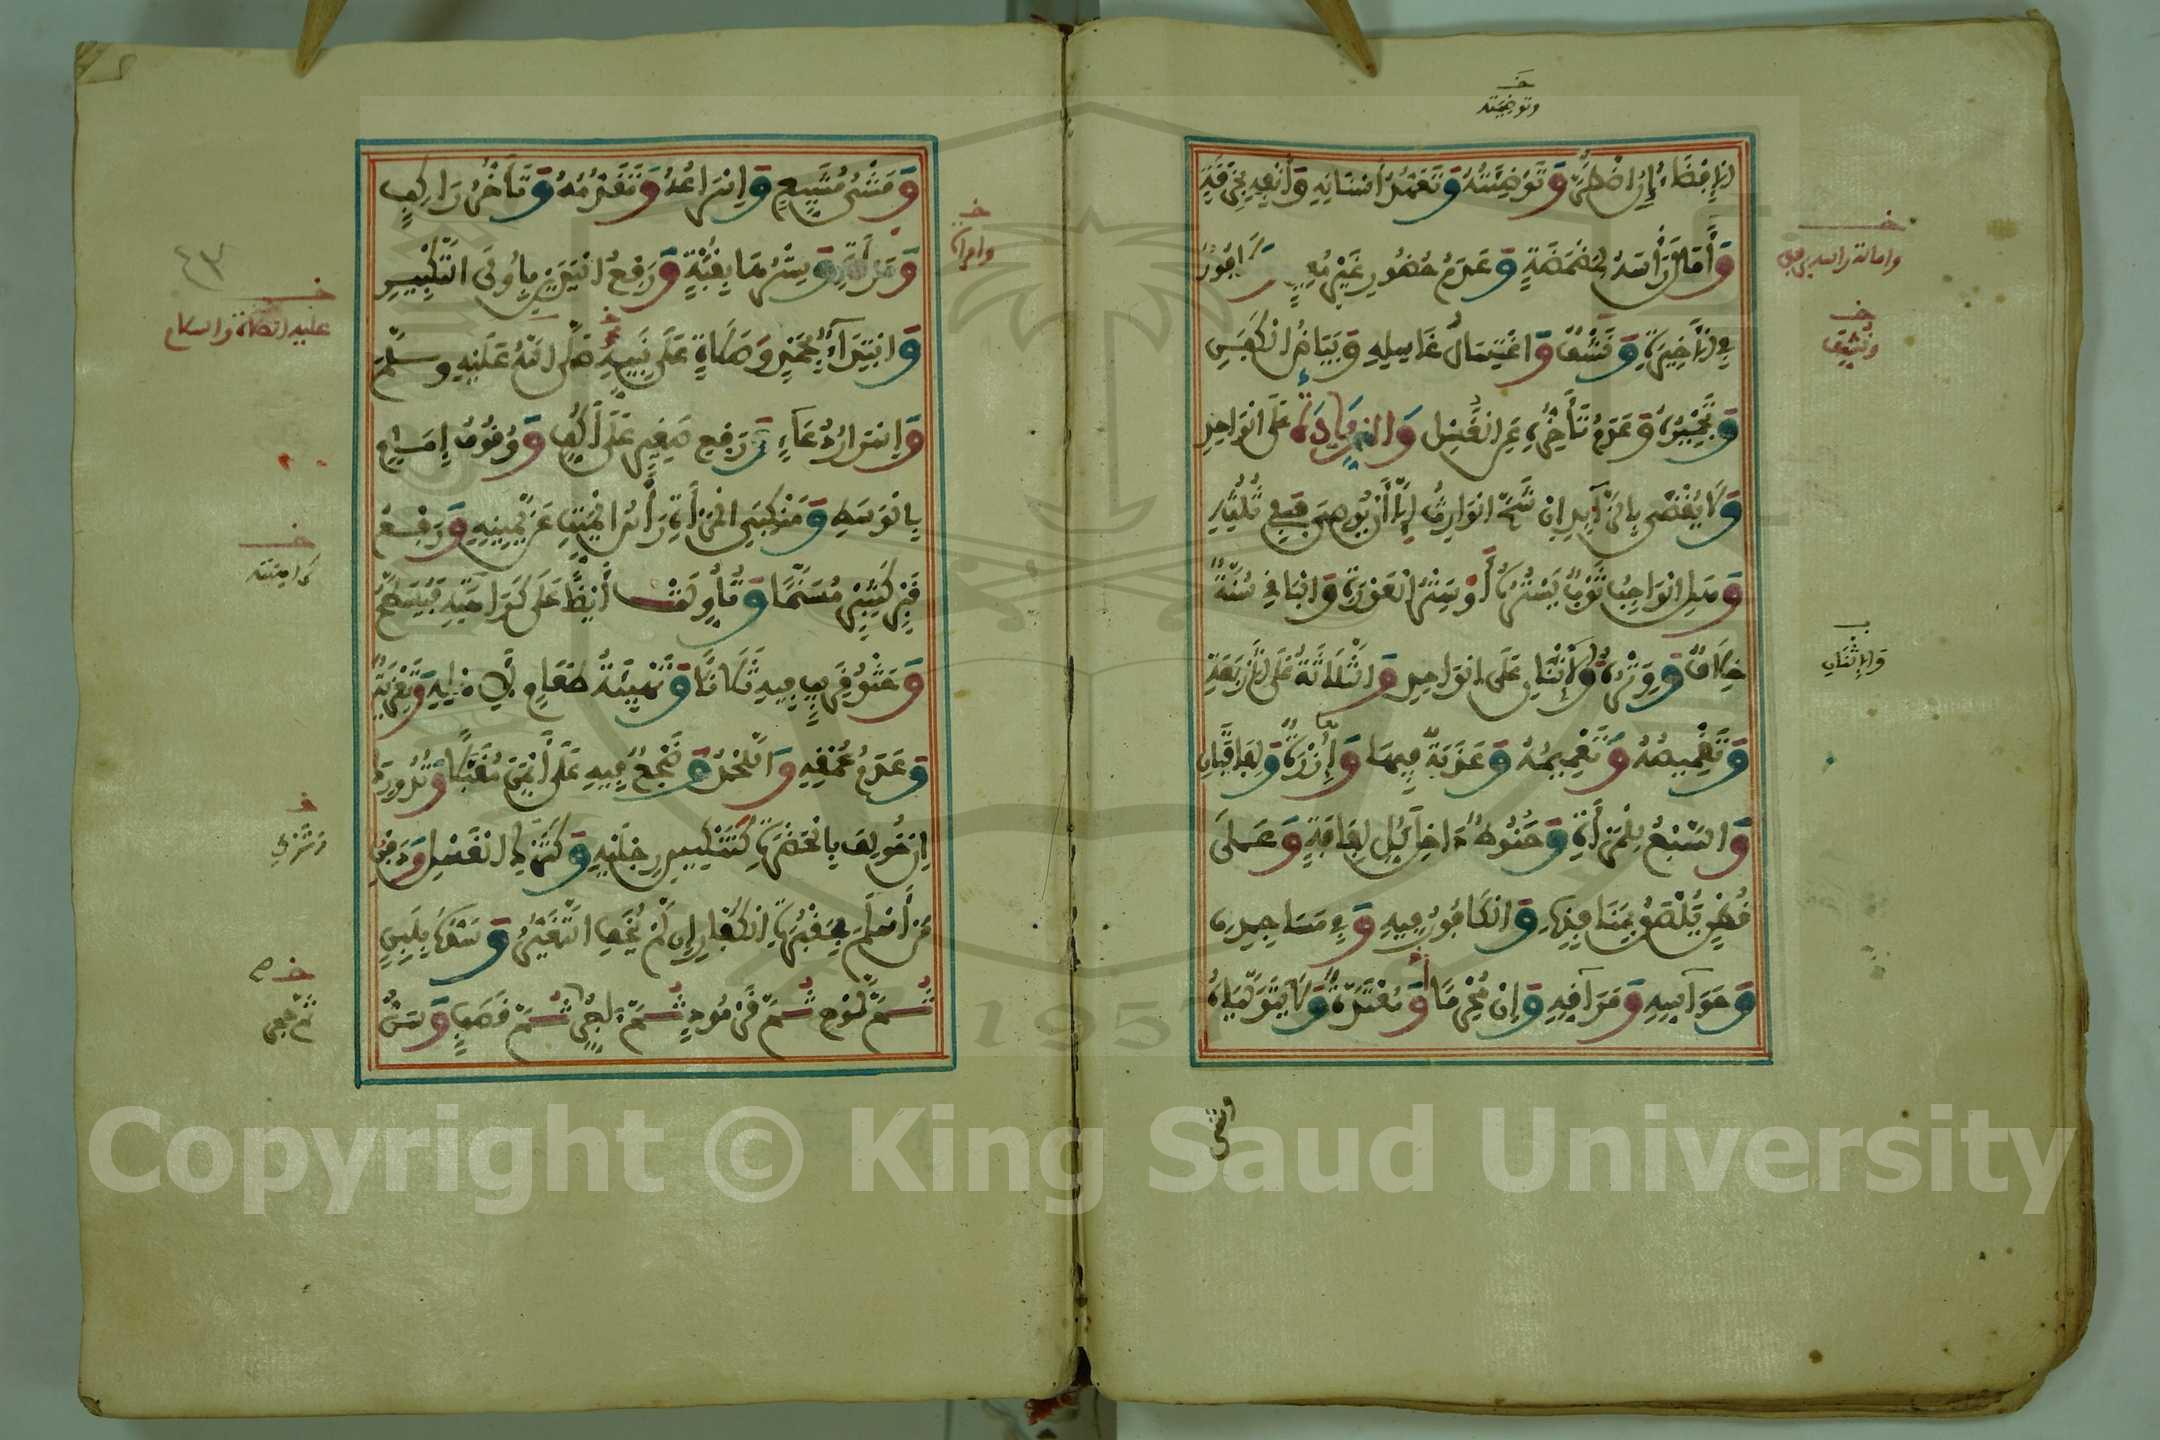 خ
وتوضيته
الإفضاء إن اضطر وتوضئته وتعهد أسنانه وأنفه بخرقة
وأمال رأسه لمضمضة وعدم حضور غير معين وكافور
في الأخيرة ونشف واغتسال غاسله وبياض الكفن
وتجميره وعدم تأخره عن الغسل والزيادة على الواحد
ولا يقضى بالزائد إن شح الوارث إلا أن يوصي ففي ثلثه
وهل الواجب ثوب يستره أو ستر العورة والباقي سنة
خلاف ووتره والاثنان على الواحد والثلاثة على الأربعة
وتقميصه وتعميمه وعذبة فيها وأزرة ولفافتان
والسبع للمرأة وحنوط داخل كل لفافة وعلى
قطن يلصق بمنافذه والكافور فيه وفي مساجده
وحواسه ومراقه وإن محرما أو معتدة ولا يتولياه
ومشي
خ
وامالة راسه برفق
خ
وتنشيف
والاثنان
ومشي مشيع وإسراعه وتقدمه وتأخر راكب
ومرأة وسترها بقبة ورفع اليدين بأولى التكبير
وابتداء بحمد وصلاة على نبيه صلى الله عليه وسلم
وإسرار دعاء ورفع صغير على أكف ووقوف إمام
بالوسط ومنكبي المرأة رأس الميت عن يمينه ورفع
قبر كشبر مسنما وتؤولت أيضا على كراهته فيسطح
وحثو قريب فيه ثلاثا وتهيئة طعام لأهله وتعزية
وعدم عمقه واللحد وضجع فيه على أيمن مقبلا وتدورك
إن خولف بالحضرة كتنكيس رجليه وكترك الغسل ودفن
من أسلم بمقبرة الكفار إن لم يخف التغير وسده بلبن
ثم لوح ثم قرمود ثم آجر ثم قصب وسن
خ
٤٣
خ
عليه الصلاة والسلام
خ
كراهيته
خ
خ
Copyright © King Saud University
1957